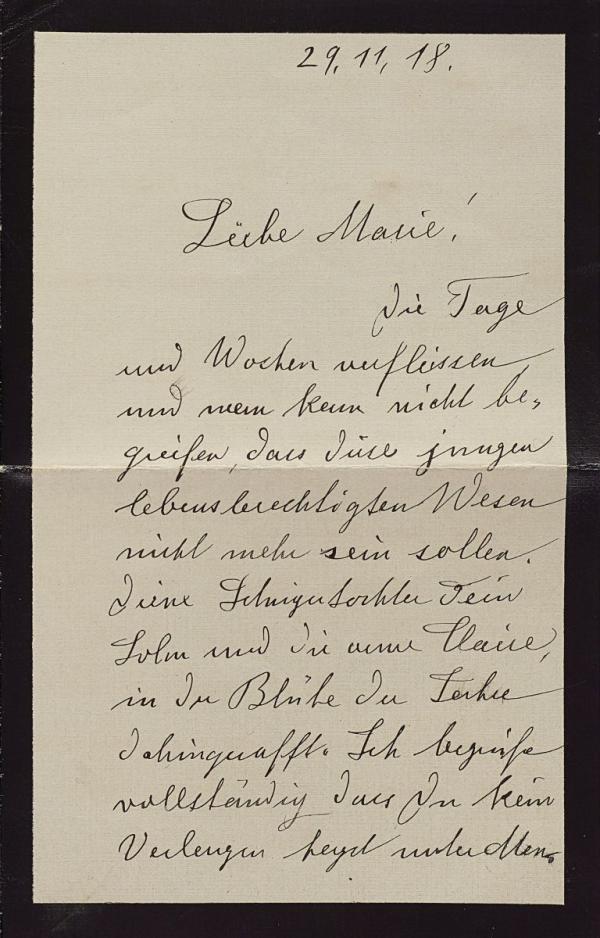 29. 11. 18.
Liebe Marie!
Die Tage
und Wochen verfliessen
und man kann nicht be-
greifen, dass diese jungen
lebensberechtigten Wesen
nicht mehr sein sollen.
Deine Schwigertochter Dein
Sohn und die arme Claire,
in der Blühte der Jahre
dahingerafft. Ich begreife
vollständig dass Du kein
Verlangen hegst unter Men-